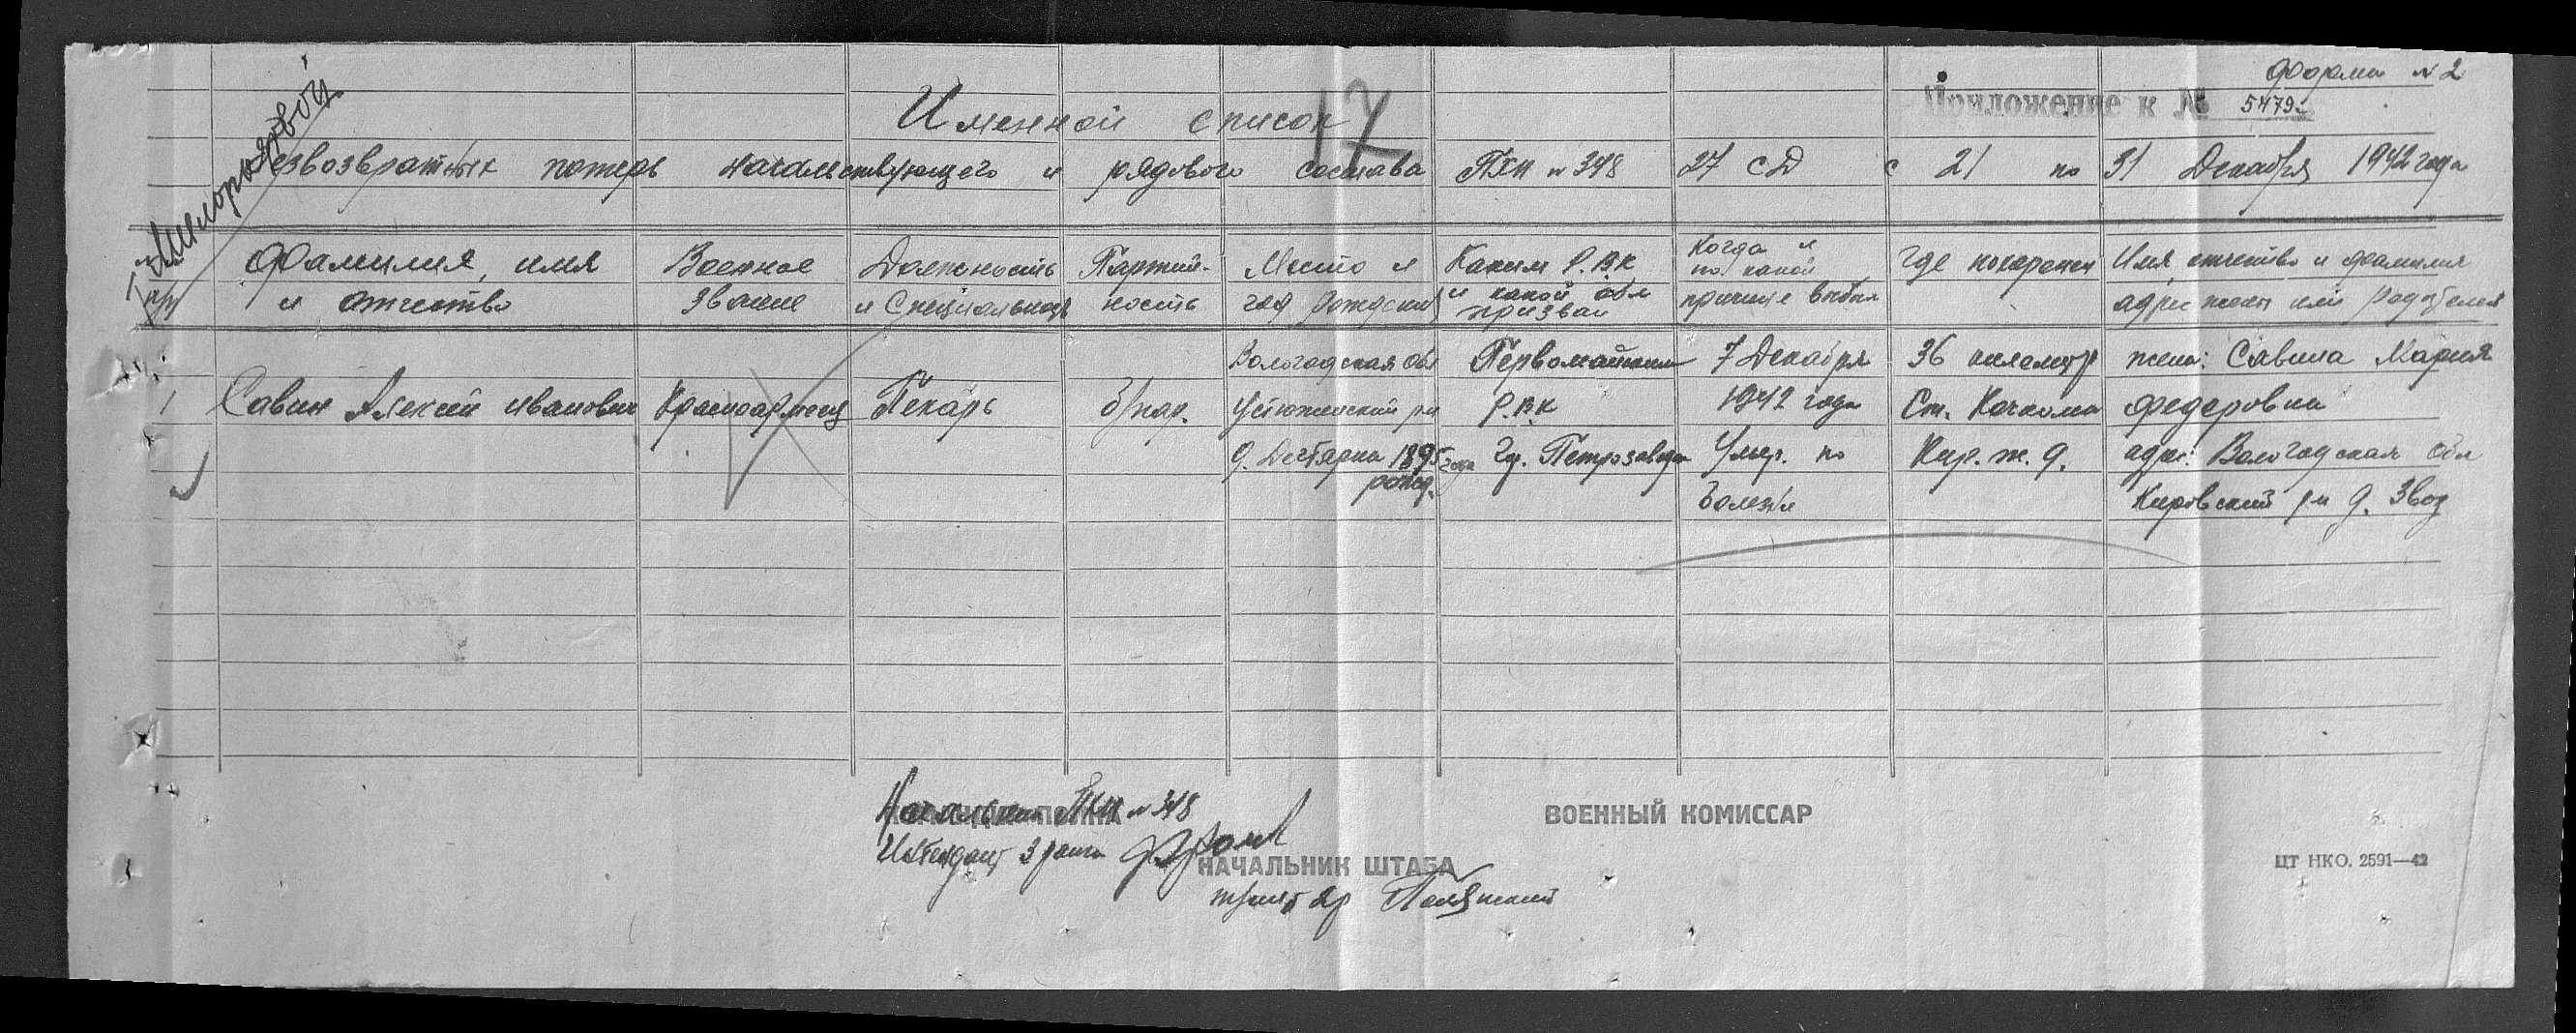 Форма №2
Приложение к № 5479с
Именной список
17
безвозвратных потерь начальствующего и рядового состава ПХП №348 27 СД с 21 по 31 Декабря 1942 года
Фамилия, имя и отчество
Военное звание
Должность и Специальность
Партий-
ность
Место и год рождения
Каким Р.В.К
и какой обл
призван
Когда и
по какой
причине выбыл
Где похоронен
Имя, отчество и фамилия
адрес жены или родителей
1
Савин Алексей Иванович
Красноармеец
Пекарь
б/пар.
Вологодская обл
Устюженский р-н
д. 1895 года
рожд.
Первомайским
Р.В.К
Гор. Петрозаводск
7 Декабря
1942 года
Умер. по
болезни
36 километр
Ст. Кочкома
Кир. ж. д.
жена: Савина Мария
Федоровна
адрес: Вологодская обл
Кировский р-н д. Звоз
Начальник ПХП №348
Интендант 3 ранга
ВОЕННЫЙ КОМИССАР
НАЧАЛЬНИК ШТАБА
ЦТ НКО. 2591—42